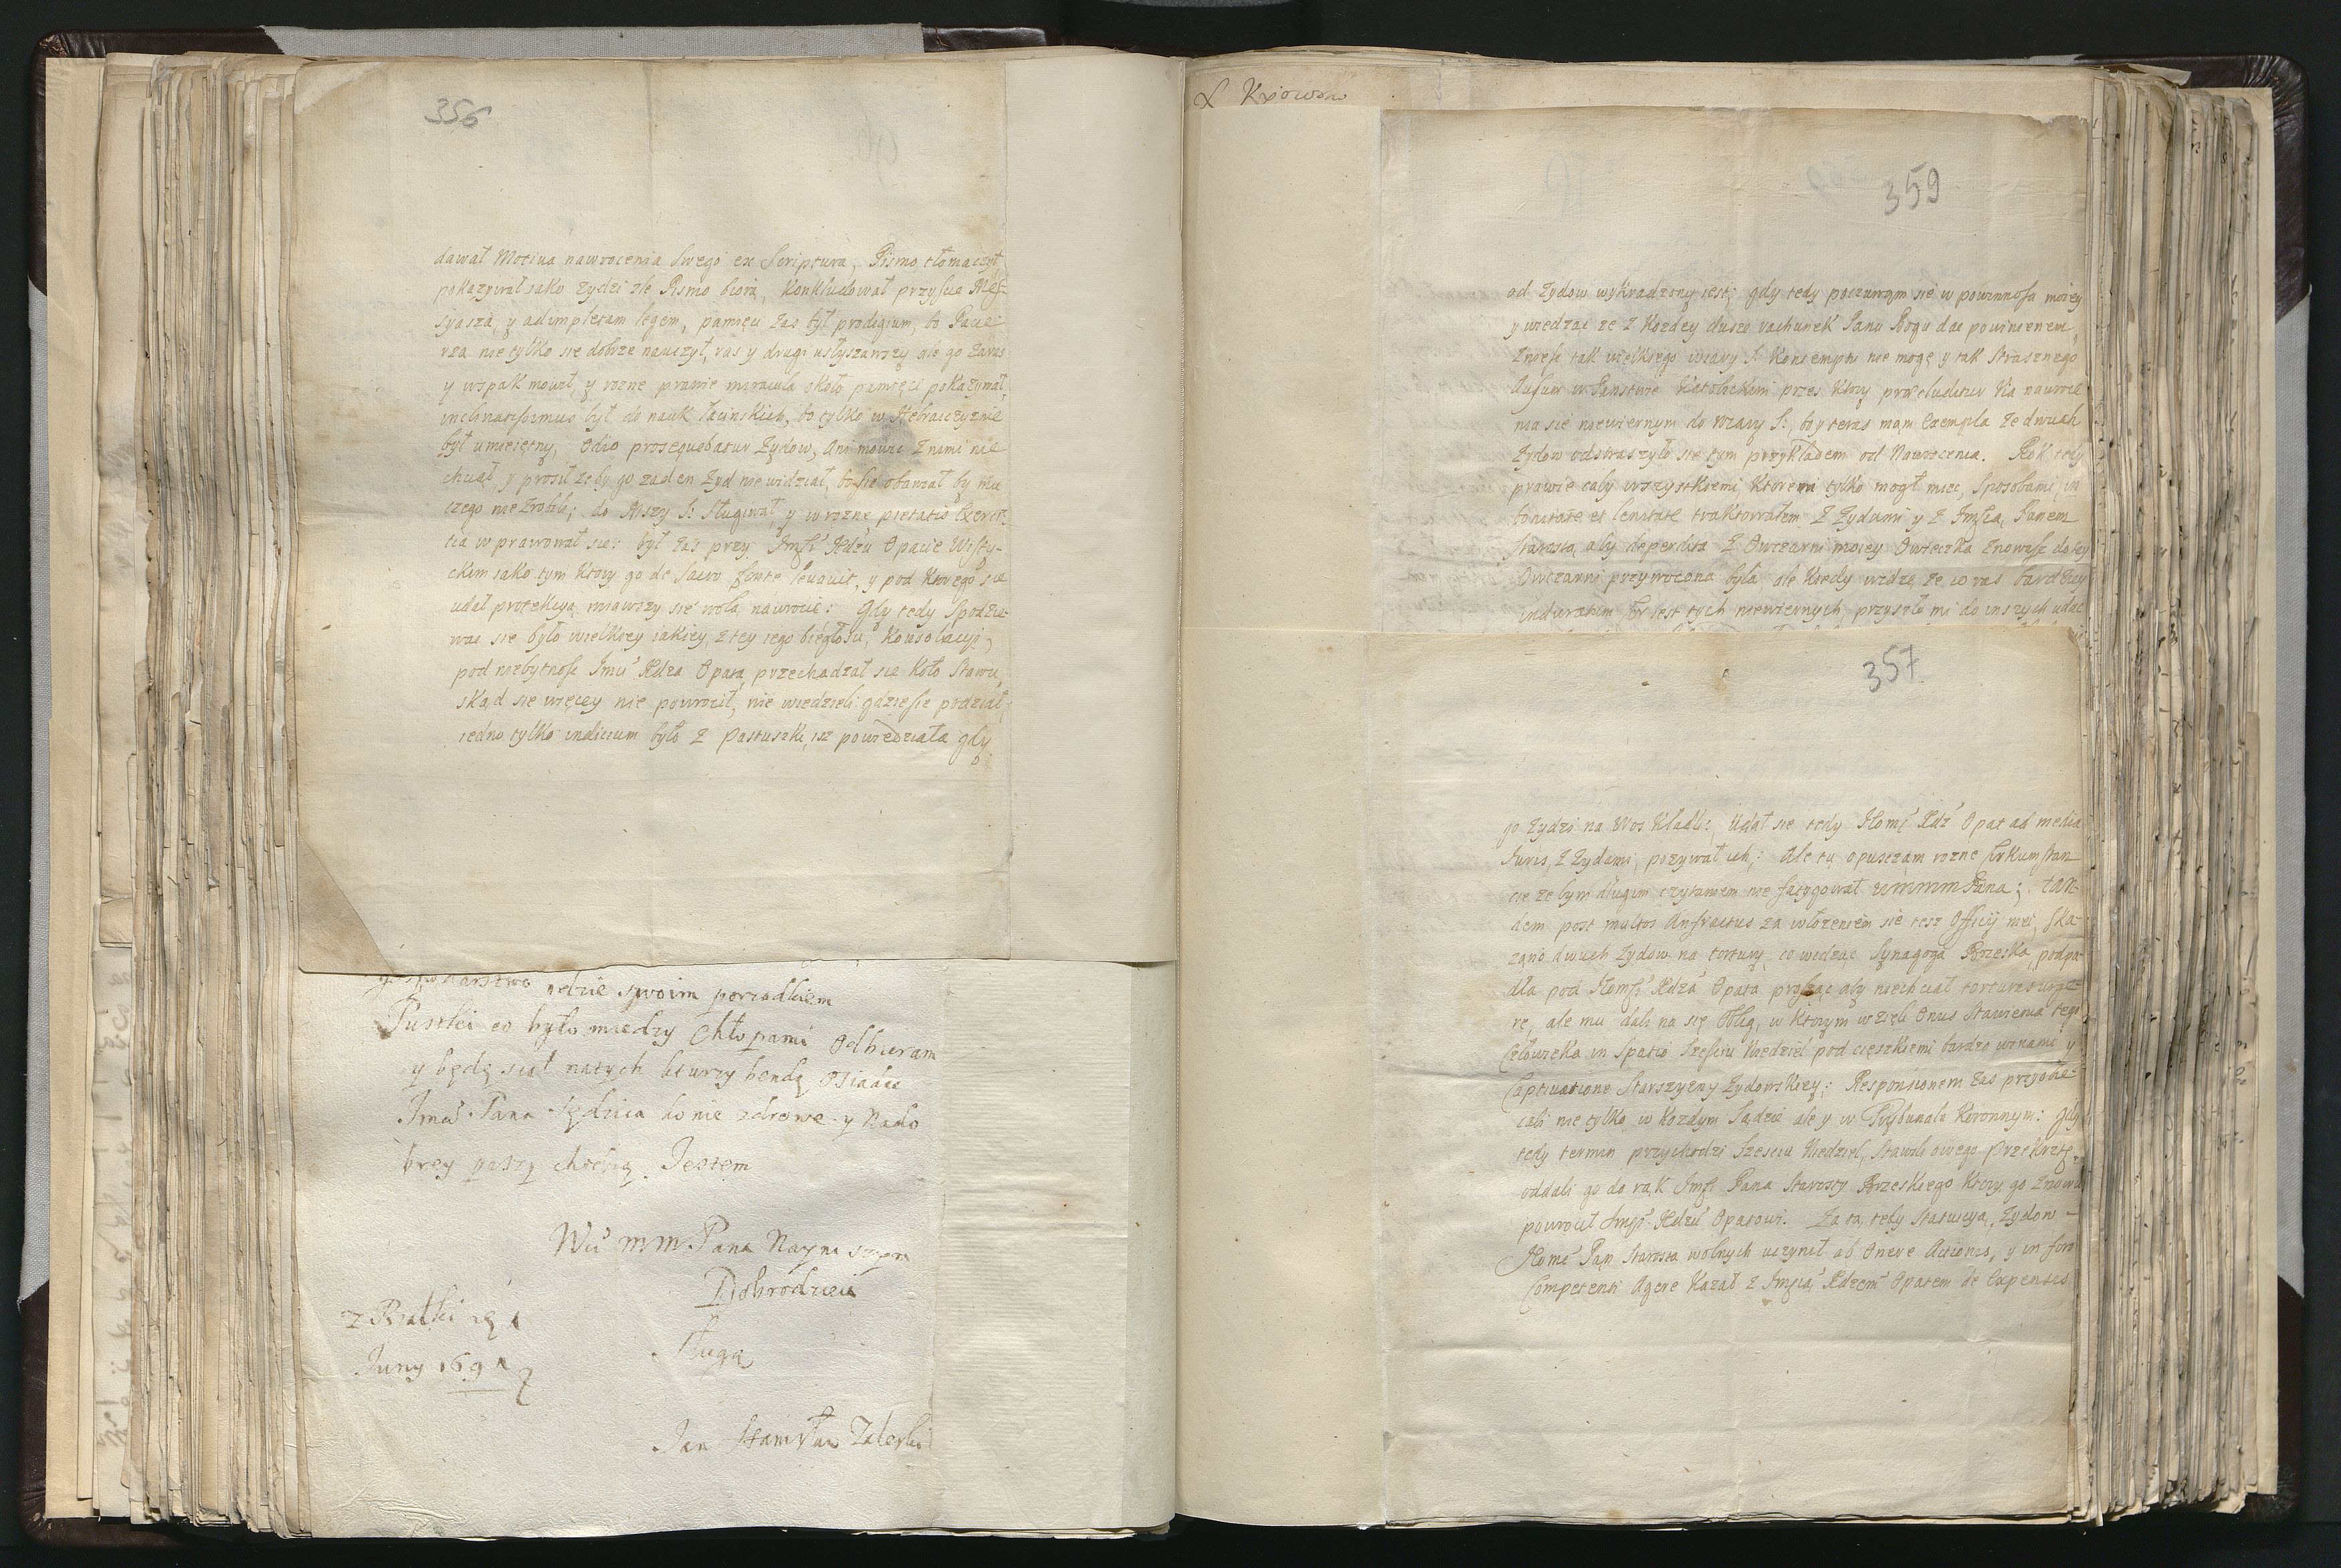 356
dawał Motiva nawrocenia swego ex Scriptura, Pismo tłomaczył,
pokazywał iako Zydzi zle Pismo biorą, konkludował przyscie Mes-
syasza, y adimpletam legem, pamięci zas był prodigium, bo Pacie-
rza nie tylko się dobrze nauczył, raz y drugi usłyszawszy ale go zaras
y wspak mowił, y rozne prawie miracula około pamięci pokazywał,
inclinatissimus był do nauk Łacinskich, bo tylko w Hebraiczyznie
był umieiętny, Odio prosequebatur Zydow, Ani mowic z niemi nie
chciał, y prosił żeby go żaden Zyd nie widział, bo się obawiał by mu
czego nie zrobili; do Mszy S: sługiwał y w rozne pietatis Exerci-
tia wprawował się: był zas przy Opacie Wisty-
ckim iako tym ktory go de Sacro fonte levavit, y pod ktorego się
udał protekcyą miawszy się wolą nawrocic: Gdy tedy spodzie-
wac się było wielkiey iakiey z tey iego biegłosci, konsolacyi,
pod niebytnosc Xdza Opata przechadzał się koło stawu,
skąd się więcey nie powrocił, nie wiedzieli gdzie się podział,
iedno tylko indicium było z Pastuszki, isz powiedziała gdy
pełnie swoim porządkiem
Puszki co było miedzy Chłopami Odbieram
y będę siał na tych kturzy bendą osiadac
Pana Sędzica konie zdrowe y na do
brey paszy chodzą Jestem
mm Pana
Dobrodzieia
Sługa
Juny 169
Jan Stanisław Zaleski
359
od Zydow wykradziony iest; gdy tedy poczuwam się w powinnosci moiey
y wiedząc ze z kozdey dusze rachunek Panu Bogu dac powinienem,
zniesc tak wielkiego wiary S: kontemptu nie mogę y tak strasznego
Ausum w Panstwie Katolickim przes ktory praecluditur via nawroce-
nia się niewiernym do wiary S:, bo y teras mam Exempla ze dwuch
Zydow odstraszyło się tym przykładem od Nawrocenia. Rok tedy
prawie cały wszystkiemi, ktoremi tylko mogł miec, sposobami, in
bonitate et lenitate traktowałem z Zydami y z Panem
Starostą, aby deperdita z Owczarni moiey Owieczka znowusz do tey
Owczarni przywrocona była ale kiedy widzę, ze w ras bardziey
induratum Cor iest tych niewiernych, przyszło mi do inszych udac
357
go Zydzi na wos kładli: Udał się tedy Xdz Opat ad media
Iuris, z Zydami, pozywał ich,: Ale tu opusczam rozne Cirkumstan-
cie ze bym długim czytaniem nie fatygował Pana; tan-
dem post multos Anfractus za włozeniem się tesz Officij mei, ska-
zano dwuch Zydow na tortury, co widząc Synagoga Brzeska, podpa-
dła pod Xdza Opata prosząc aby niechciał torturas urge-
re, ale mu dali na się Oblig, w ktorym wzięli Onus stawienia tego
Człowieka in spatio szesciu Niedziel pod cięszkiemi bardzo winami y
Captivatione Starszyzny Zydowskiey: Responsionem zas przyobie-
cali nie tylko w kozdym Sądzie ale y w Trybunale koronnym: gdy
tedy termin przychodzi szesciu Niedziel, stawili owego
oddali go do rąk Pana Starosty Brzeskiego ktory go znowu
powrocił Xdzu Opatowi. Za tą tedy statuicyą, Zydow
Pan Starosta wolnych uczynił ab Onere Actionis, y in foro
Competenti Agere kazał z Xdzem Opatem de Expensis